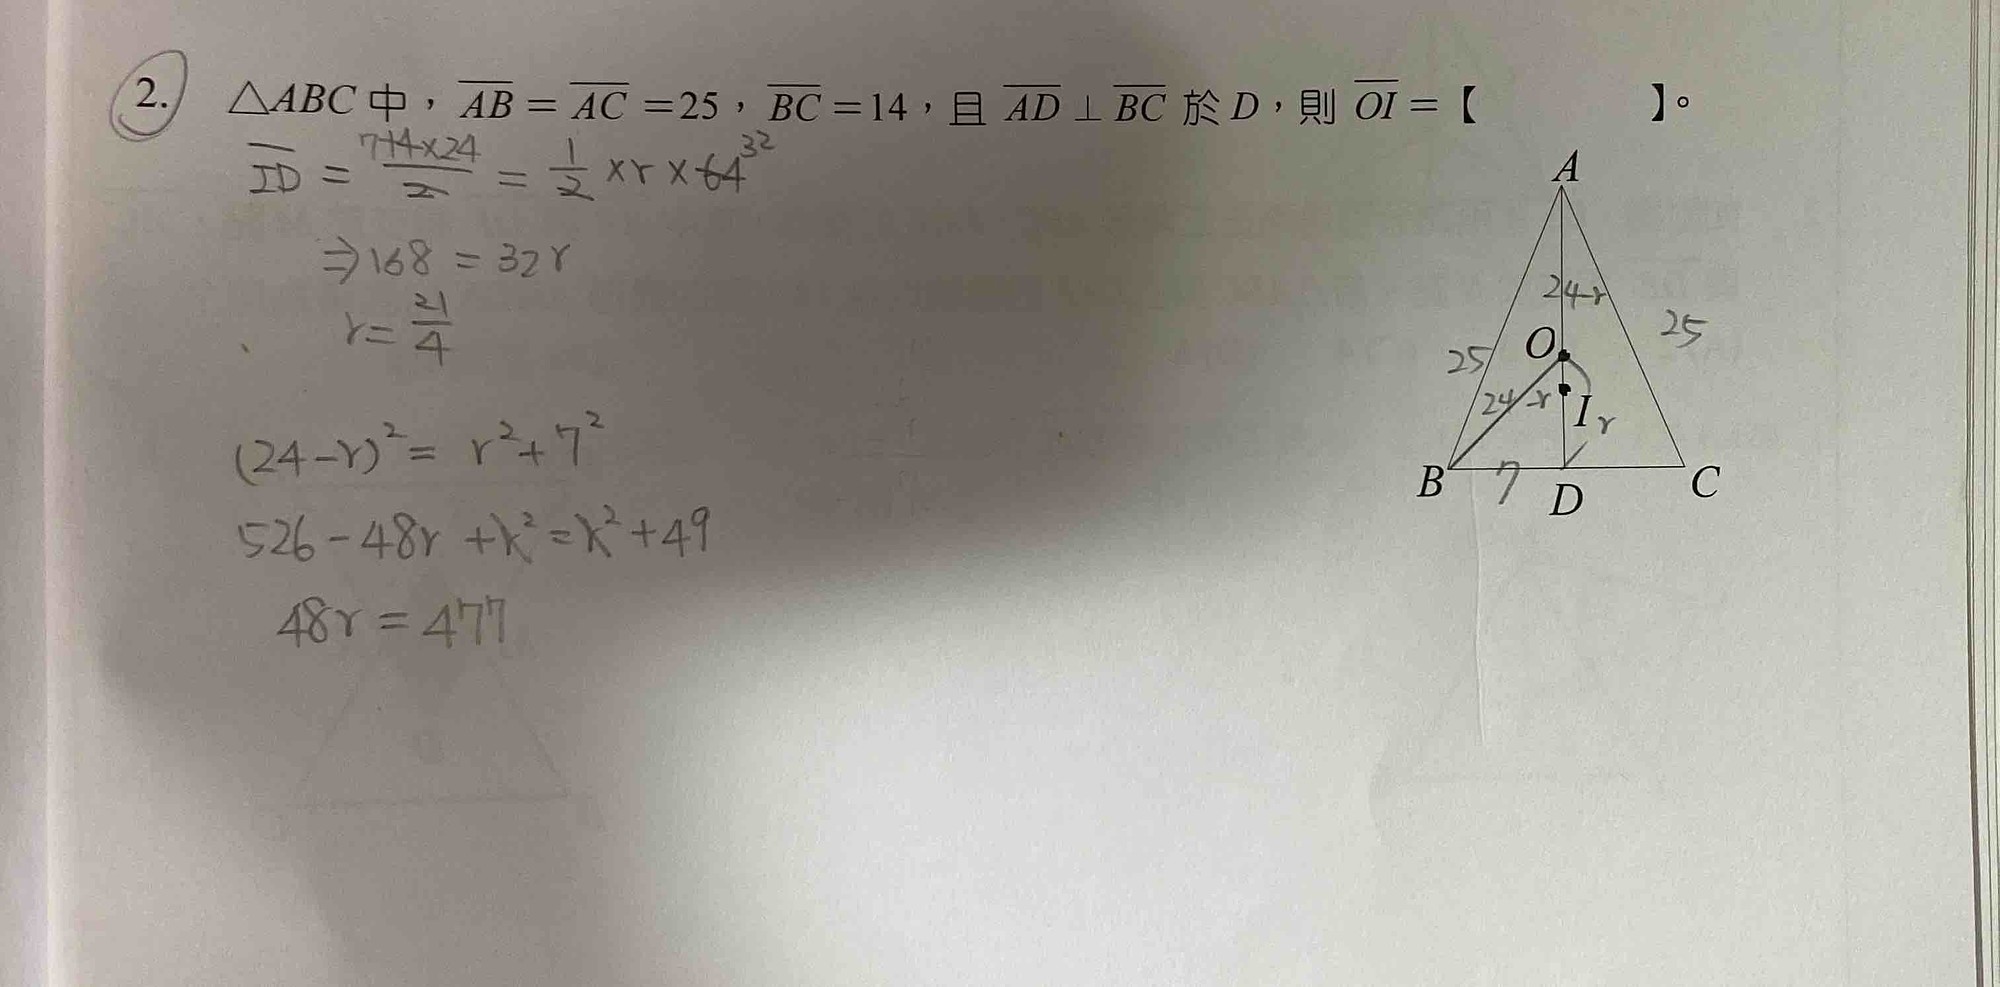 2. △ABC 中，AB = AC = 25，BC = 14，且 AD ⊥ BC 於 D，則 OI =【　　　】。
ID = 7 14×24 / 2 = 1/2 × r × 64 32
⇒ 168 = 32r
r = 21/4
(24-r)² = r² + 7²
526 - 48r + r² = r² + 49
48r = 477
A
24-r
25
O
25
24-r
I
r
B
7
D
C